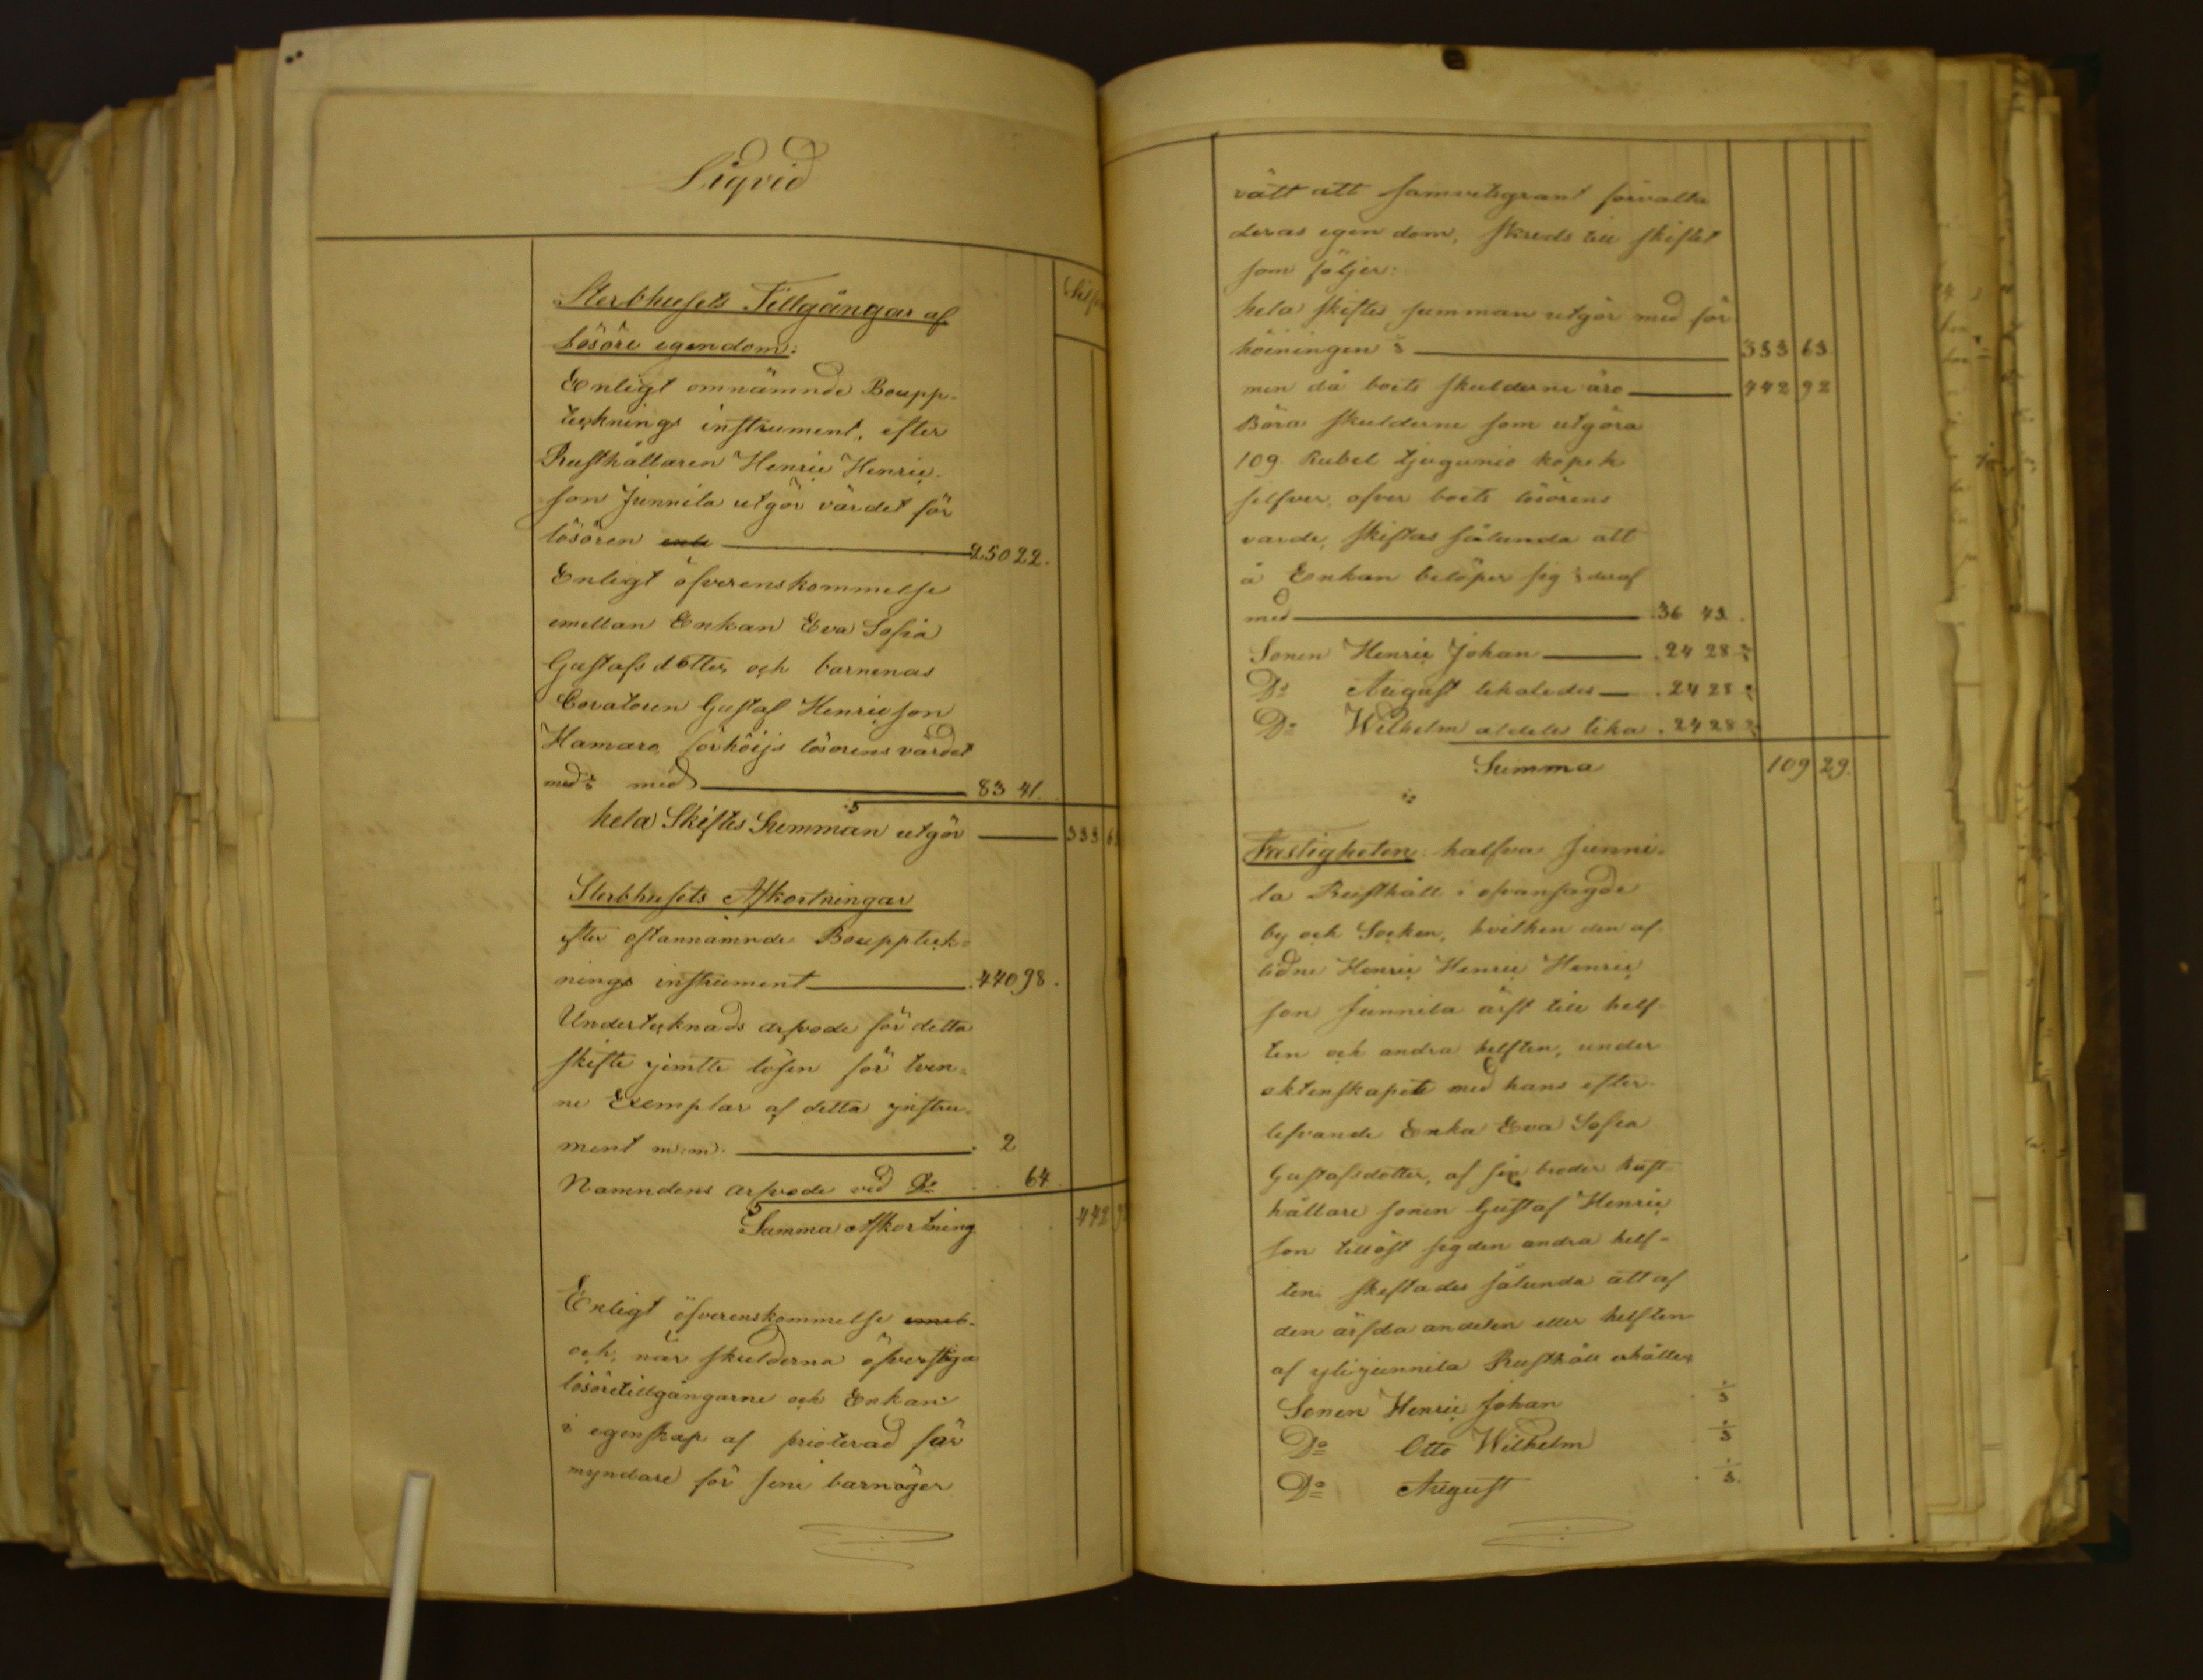 Liqvid
Silfver
Sterbhusets Tillgångar af
lösöre egendom:
Enligt omnämnde Boupp-
teknings instrument, efter
Rusthållaren Henric Henric-
son Junnila utgör värdet för
lösören 250 22.
Enligt öfverenskommelse
emellan Enkan Eva Sofia
Gustafsdotter och barnenas
Coratoren Gustaf Henricson
Hamaro förhöijs lösörens värdet
med 1/3 med 83 41.
hela Skiftes Summan utgör 333 63
Sterbhusets Afkortningar
efter oftannamnde Bouppteck-
nings instrument 440 98.
Undertecknads arfvode för detta
skifte jemte lösen för tven-
ne Exemplar af detta jnstru-
ment m:m: 2
Namndens arfvode vid Do 64.
Summa Afkortning 442 92
Enligt öfverenskommelse emel-
och, när skulderna öfverstiga
lösöretillgångarne och Enkan
i egenskap af för
myndare för sine barn äger
rått att samvetsgrant förvalta
deras egendom, skreds till skiftet
som följer:
hela skiftes summan utgör med för
höiningen 1/3 333 63.
men då boets skulderne äro 442 92
Böra skulderne som utgöra
109 Rubel tjugunio kopek
silfver, öfver boets lösörens
varde, skiftas sålunda att
å Enkan belöper sig 1/3 deraf
med 36 43.
Sonen Henric Johan 24 28 2/3
Do August likaledes 24 28 2/3
Do Wilhelm aldeles lika 24 28 2/3
Summa 109 29.
Fastigheten halfva Junni-
la Rusthåll i ofvansagde
by och Socken, hvilken den af-
lidne Henric Henric Henric
son Junnila ärft till helf
ten och andra helften, under
ektenskapet med hans efter-
lefvande Enka Eva Sofia
Gustafsdotter, af sin broder Rust-
hållare sonen Gustaf Henric
son tillöst sig den andra helf-
ten. skiftades sålunda att af
den ärfda andelen eller helften
af ylijunnila Rusthåll erhåller
Sonen Henric Johan 1/3
Do Otto Wilhelm 1/3
Do August 1/3.